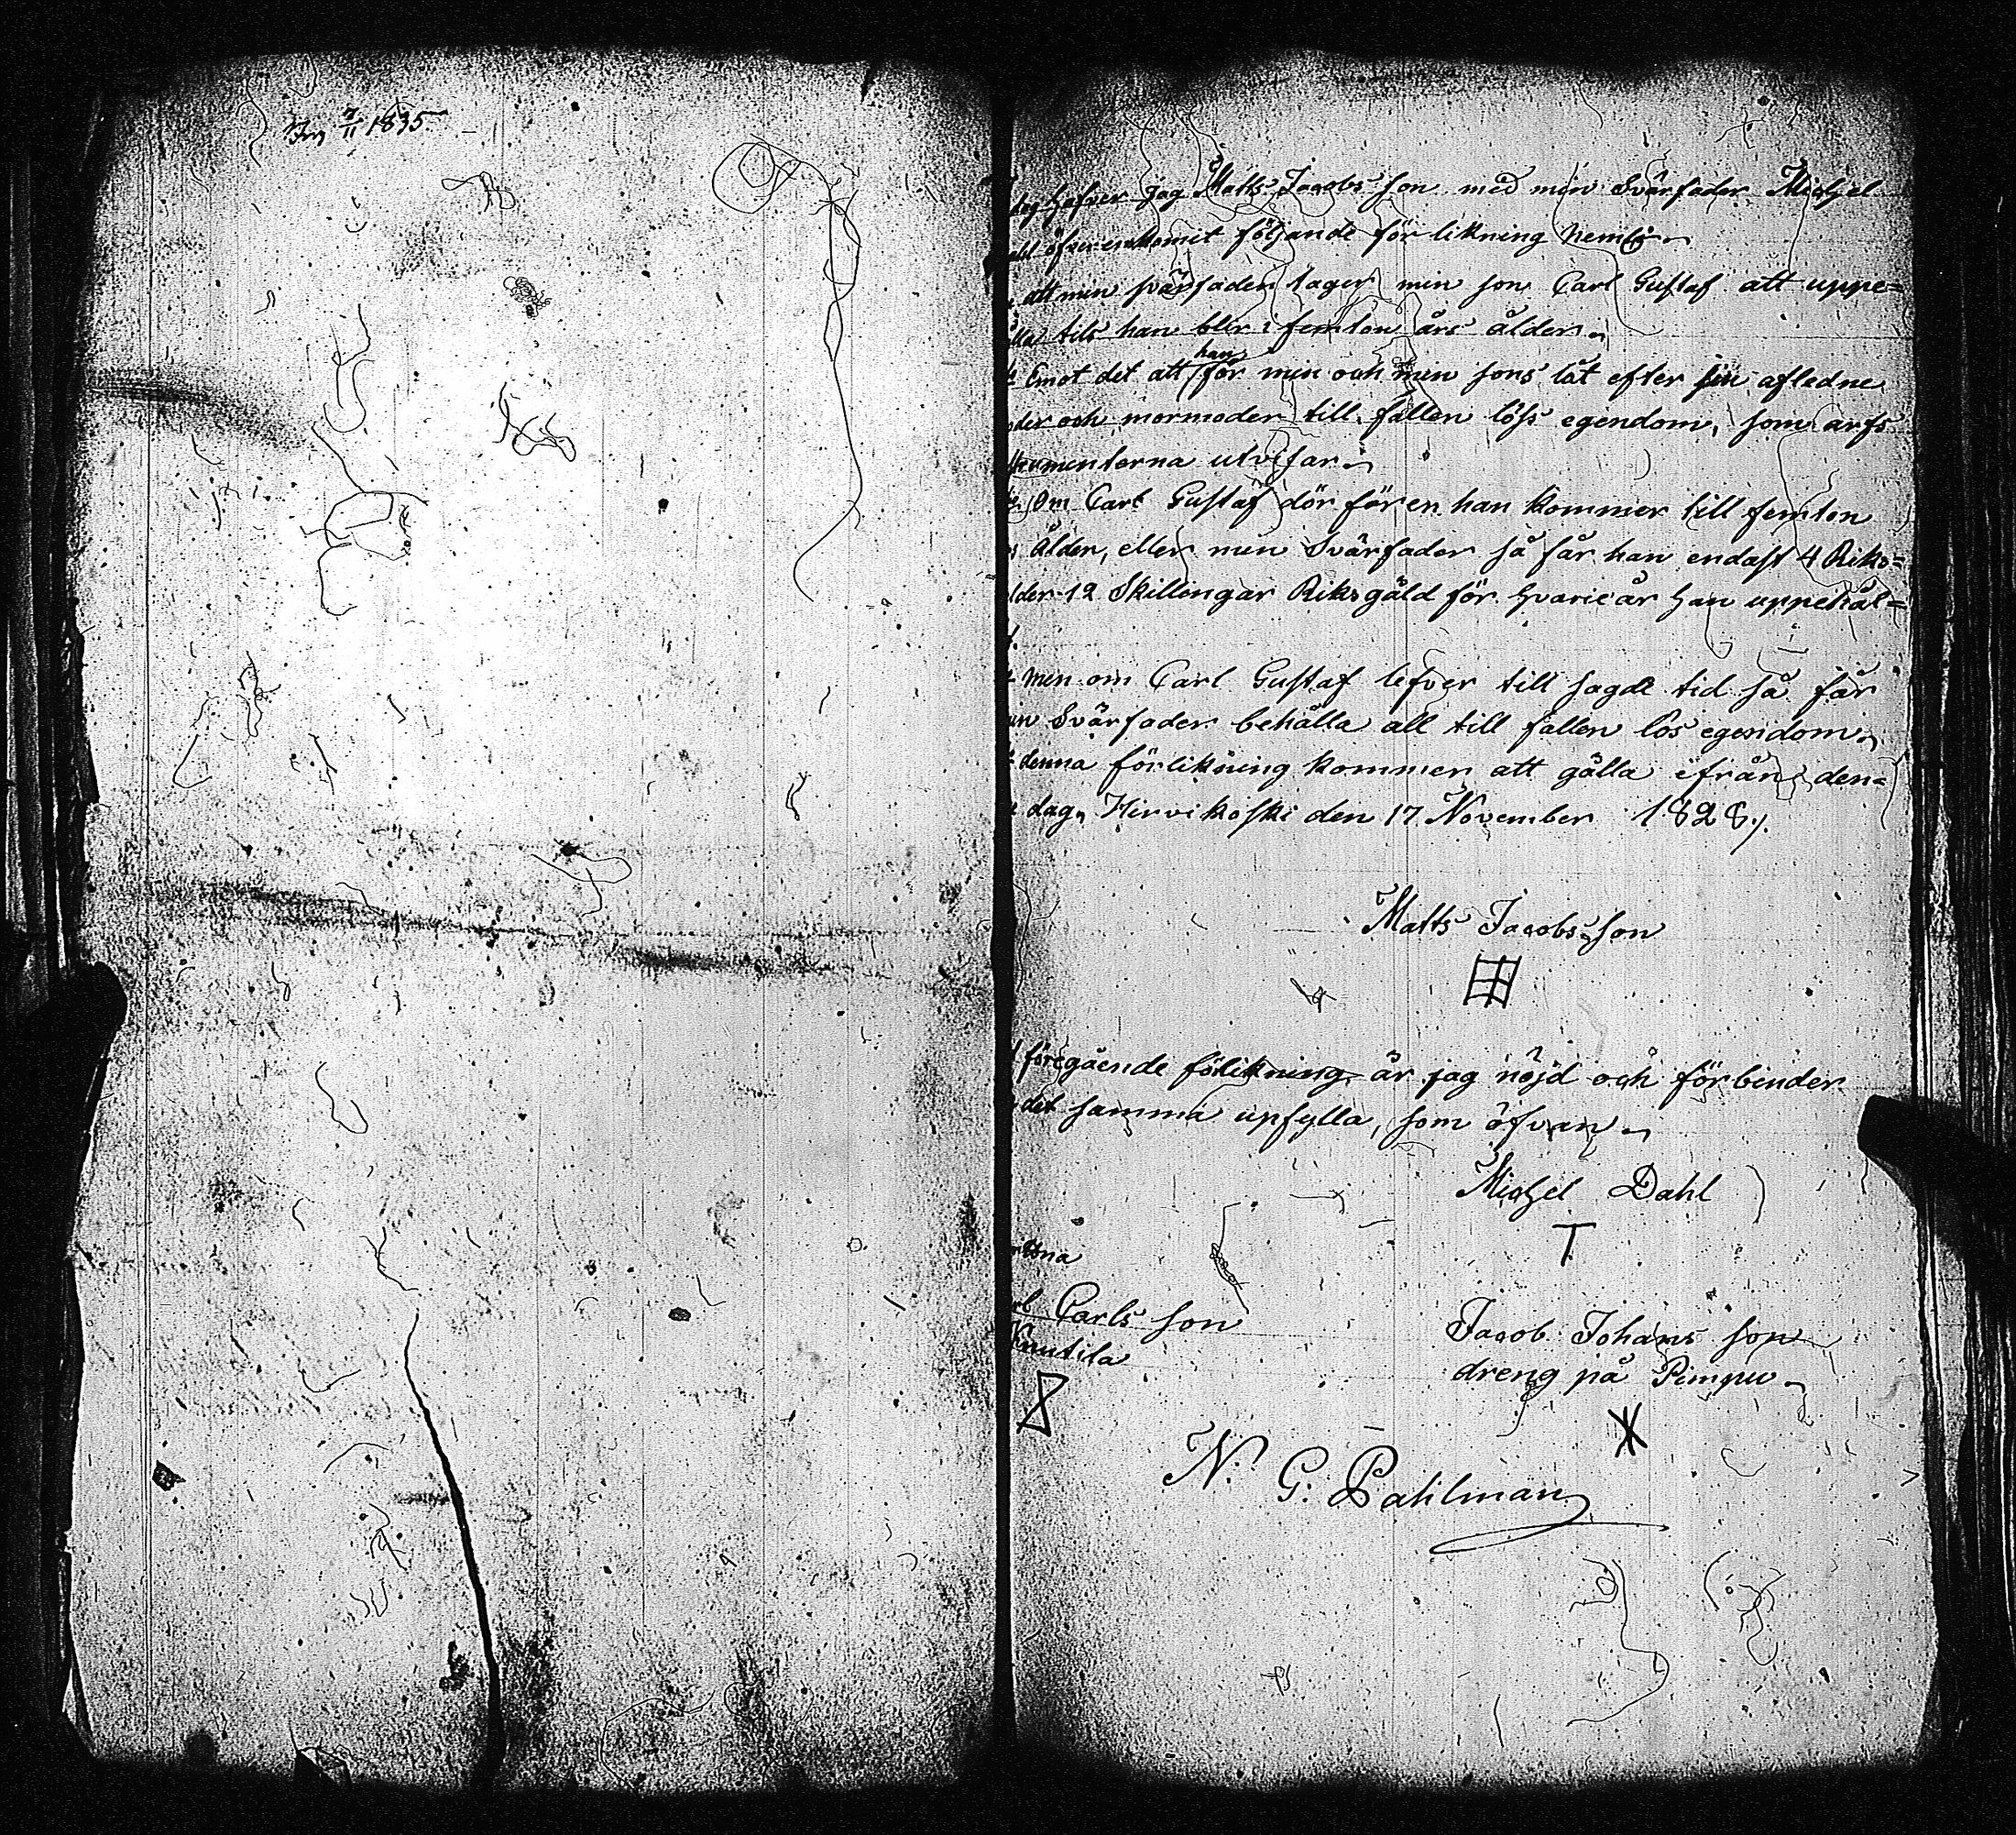 7/11 1835.
dag hafver jag Matts Jacobs son med min Svärfader Michel
öfverenskomit följande för likning neml:
att min svärfader tager min son Carl Gustaf att uppe=
lla tils han blir i femton års ålder.
Emot det att han får min och min sons låt efter sin afledne
oder och mormoder till fallen löss egendom, som arfs
umenterna utvisar.
Om Carl Gustaf dör fören han kommer till femton
s Ålder, eller min Svärfader så får han endast 4 Riks=
lder 12 Skillingar Riksgäld för hvarie år han uppehål=
t.
men om Carl Gustaf lefver till sagde tid så får
in Svärfader behålla all till fallen lös egendom.
denna förlikning kommer att gälla ifrån den=
a dag, Hirvikoski den 17 November 1828.
Matts Jacobs son
föregående förlikning är jag nöjd och förbinder
det samma upfylla, som öfvan.
Michel Dahl
tna
Carls son
Knutila
Jacob Johans son
dreng på Pimpu
N: G: Pahlman